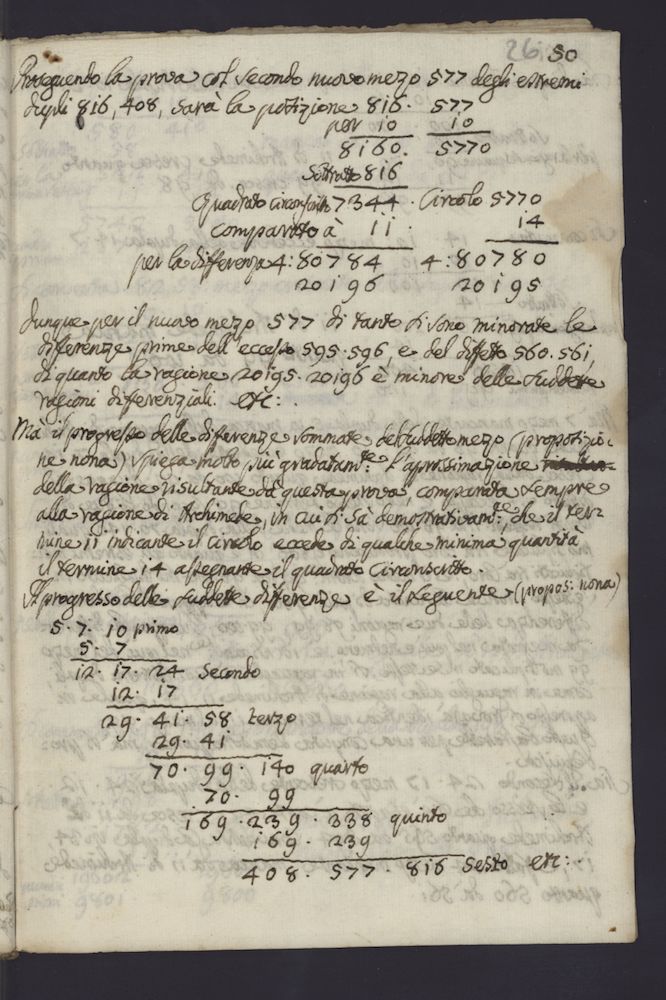 26 50
Proseguendo la prova col secondo nuovo mezo 577 degli estremi
dupli 816, 408, sarà la posizione 816. 577
per 10 10
8160. 5770
Sottratto 816
Quadrato circonscritto 7344. Circolo 5770
comparato à 11. 14
per la differenza 4:80784 4:80780
20196 20195
dunque per il nuovo mezo 577 di tanto si sono minorate le
diferenze prime dell'eccesso 595.596, e del difetto 560.561,
di quanto la ragione 20195.20196 è minore delle suddette
ragioni differenziali. etc:.
Mà il progresso delle diferenze sommate del suddetto mezo (proposizio-
ne nona) spiega molto più gradatamte: l'aprossimazione
della ragione risultante da questa prova, comparata sempre
alla ragione di Archimede, in cui si sà demostrativamte: che il ter-
mine 11 indicante il circolo eccede di qualche minima quantità
il termine 14 assegnante il quadrato circonscritto.
Il progresso delle suddette differenze è il seguente (propos: nona)
5. 7. 10 primo
5. 7
12. 17. 24 secondo
12. 17
29. 41. 58 terzo
29. 41
70. 99. 140 quarto
70. 99
169. 239. 338 quinto
169. 239
408. 577. 816 sesto etc:.